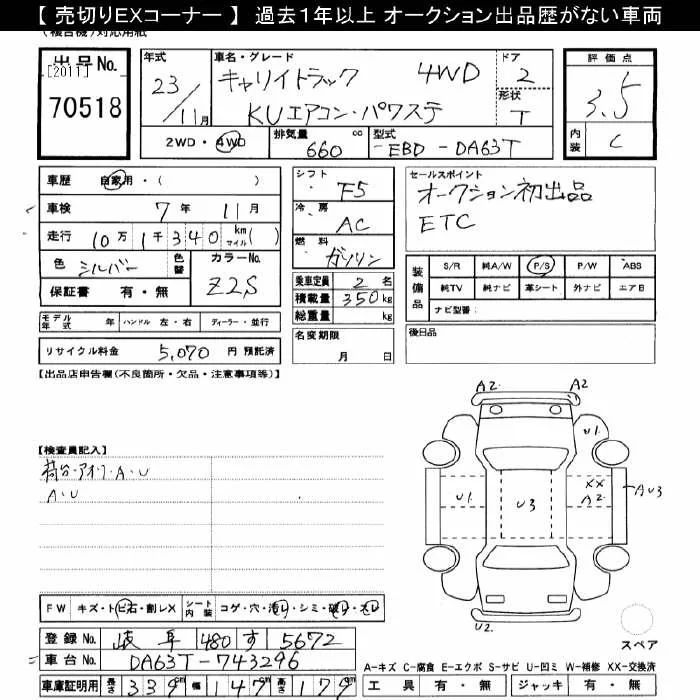 【 売切りEXコーナー 】 過去1年以上 オークション出品歴がない車両
(複合機)対応用紙
出品No.
[2011]
70518
年式
23/11月
車名・グレード
キャリイトラック 4WD
KUエアコン・パワステ
ドア
2
形状
T
評価点
3.5
内装
C
2WD・4WD
排気量
660 cc
型式
EBD-DA63T
車歴 自家用・( )
車検 7年 11月
走行 10万1千340 km マイル( )
色 シルバー 色替
カラーNo.
Z2S
保証書 有・無
シフト
F5
冷房
AC
燃料
ガソリン
乗車定員 2名
積載量 350kg
総重量 kg
セールスポイント
オークション初出品
ETC
装備品
S/R 純A/W P/S P/W ABS
純TV 純ナビ 革シート 外ナビ エアB
ナビ型番:
モデル年式 年 ハンドル 左・右 ディーラー・並行
名変期限
月 日
後日品
リサイクル料金 5,070 円 預託済
【出品店申告欄(不良箇所・欠品・注意事項等)】
【検査員記入】
荷台・アオリ・A・U
A・U
A2 A2
U1
U1 U3 XX A2
AU3
U2
スペア
FW キズ・トビ石・割レX シート内装 コゲ・穴・汚レ・シミ・破レ・スレ
登録No. 岐阜 480 す 5672
車台No. DA63T-743296
車庫証明用 長さ 339cm 幅 147cm 高さ 179cm
A-キズ C-腐食 E-エクボ S-サビ U-凹ミ W-補修 XX-交換済
工具 有・無 ジャッキ 有・無